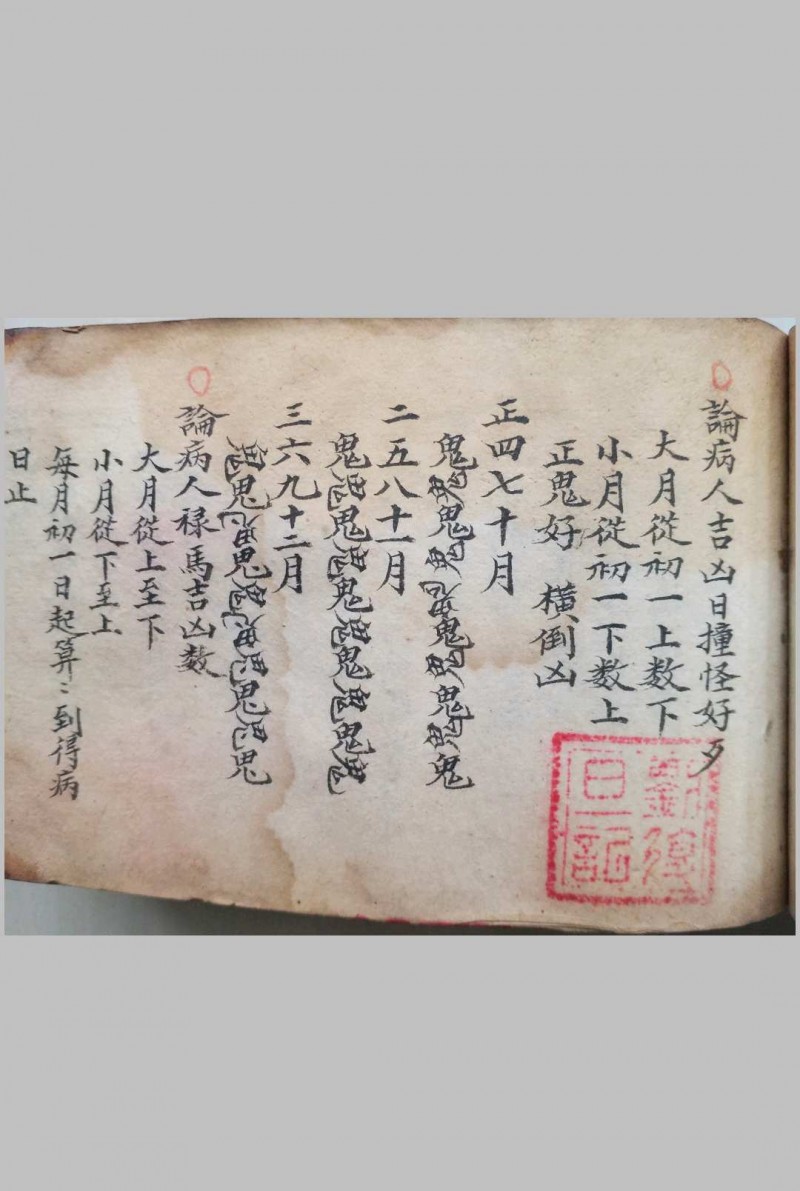 論病人吉凶日撞怪好歹
大月從初一上数下
小月從初一下数上
正鬼好 橫倒凶
正四七十月
鬼鬼鬼鬼鬼鬼鬼鬼鬼鬼
二五八十一月
鬼鬼鬼鬼鬼鬼鬼鬼鬼鬼
三六九十二月
鬼鬼鬼鬼鬼鬼鬼鬼鬼鬼
論病人禄馬吉凶数
大月從上至下
小月從下至上
每月初一日起算〻到得病
日止